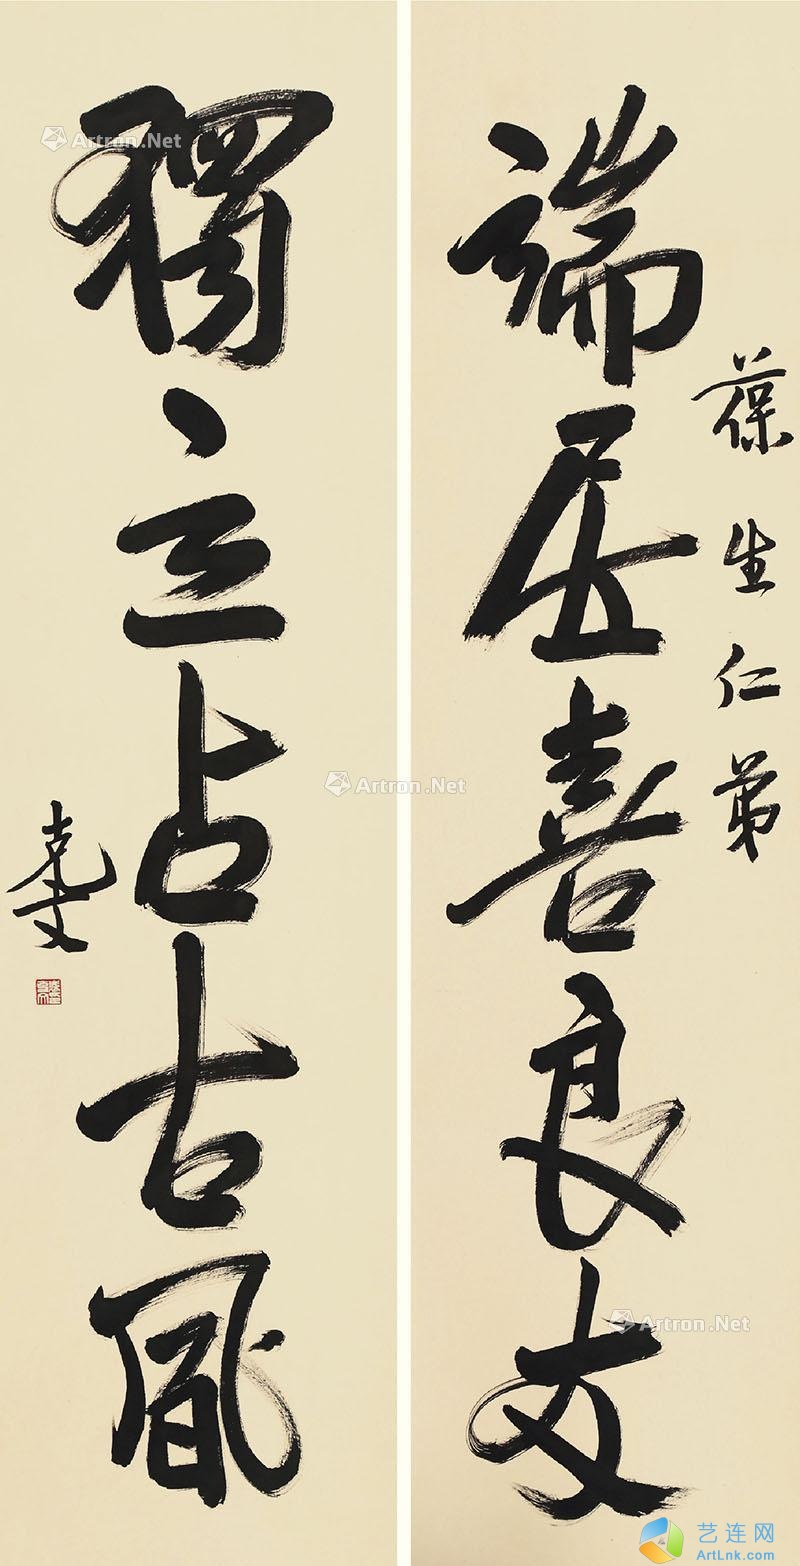 葆生仁弟
端居喜良友
獨立占古風
克文
Artron.Net
Artron.Net
Artron.Net
艺连网
ArtLnk.com